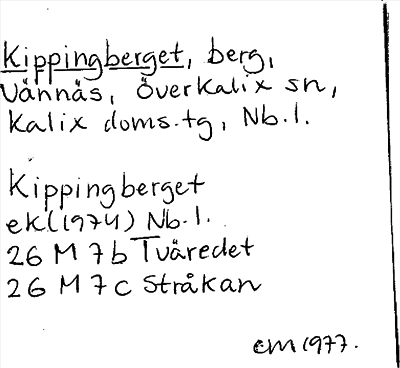 Kippingberget, berg,
Vännäs, Överkalix sn,
Kalix doms.tg, Nb.l.
Kippingberget
ek(1974) Nb.l.
26 M 7b Tväredet
26 M 7c Stråkan
EM 1977.